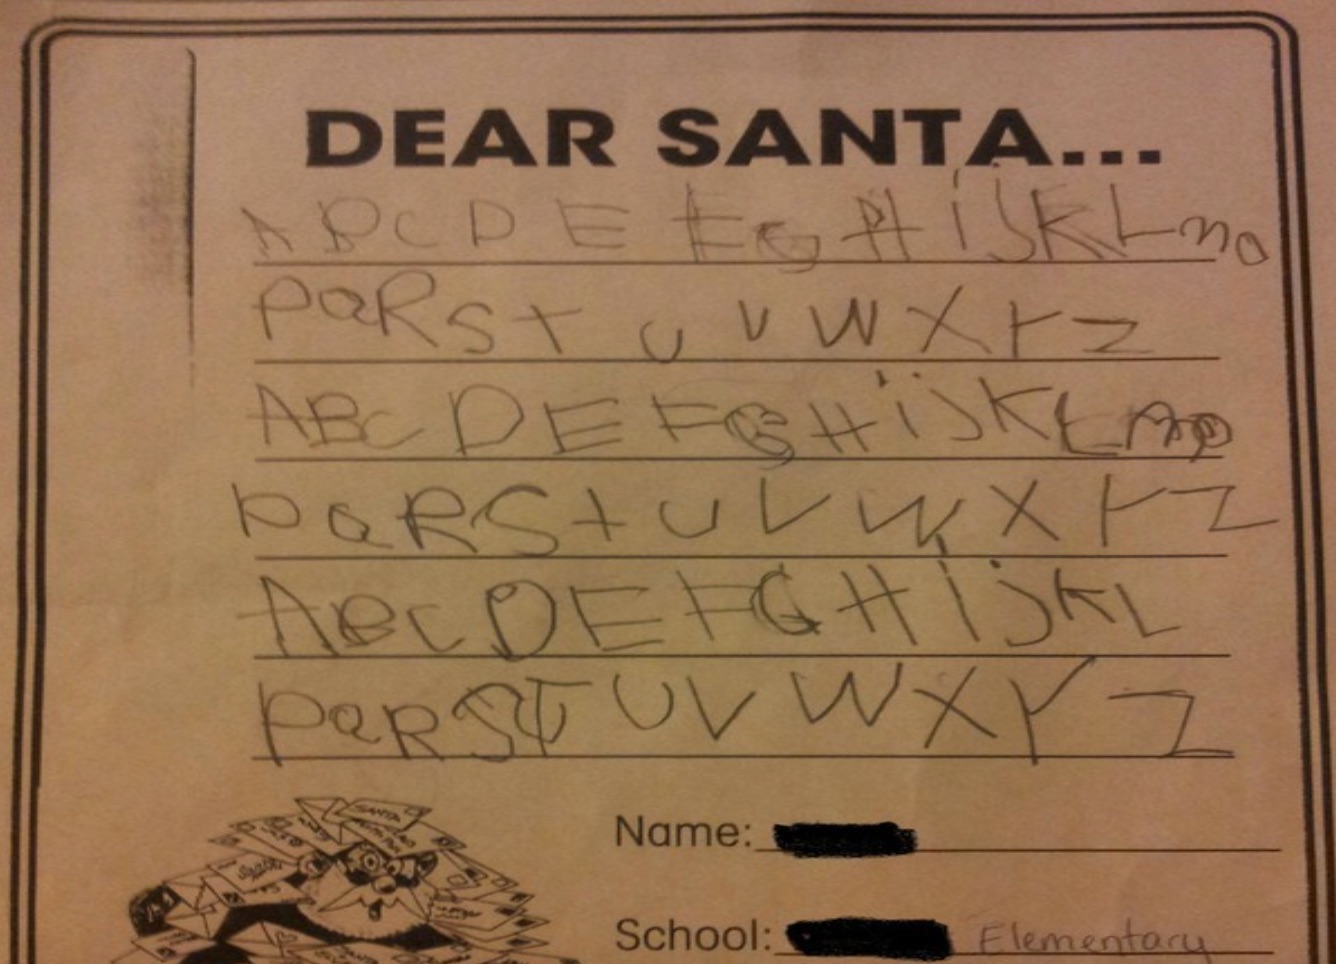 DEAR SANTA...
A B C D E F G H i j K L m o
P Q R S T U V W X Y Z
A B C D E F G H i j K L m o
P Q R S t U V W X Y Z
A B C D E F G H i j K L
P Q R S T U V W X Y Z
SANTA
Name:
School: Elementary